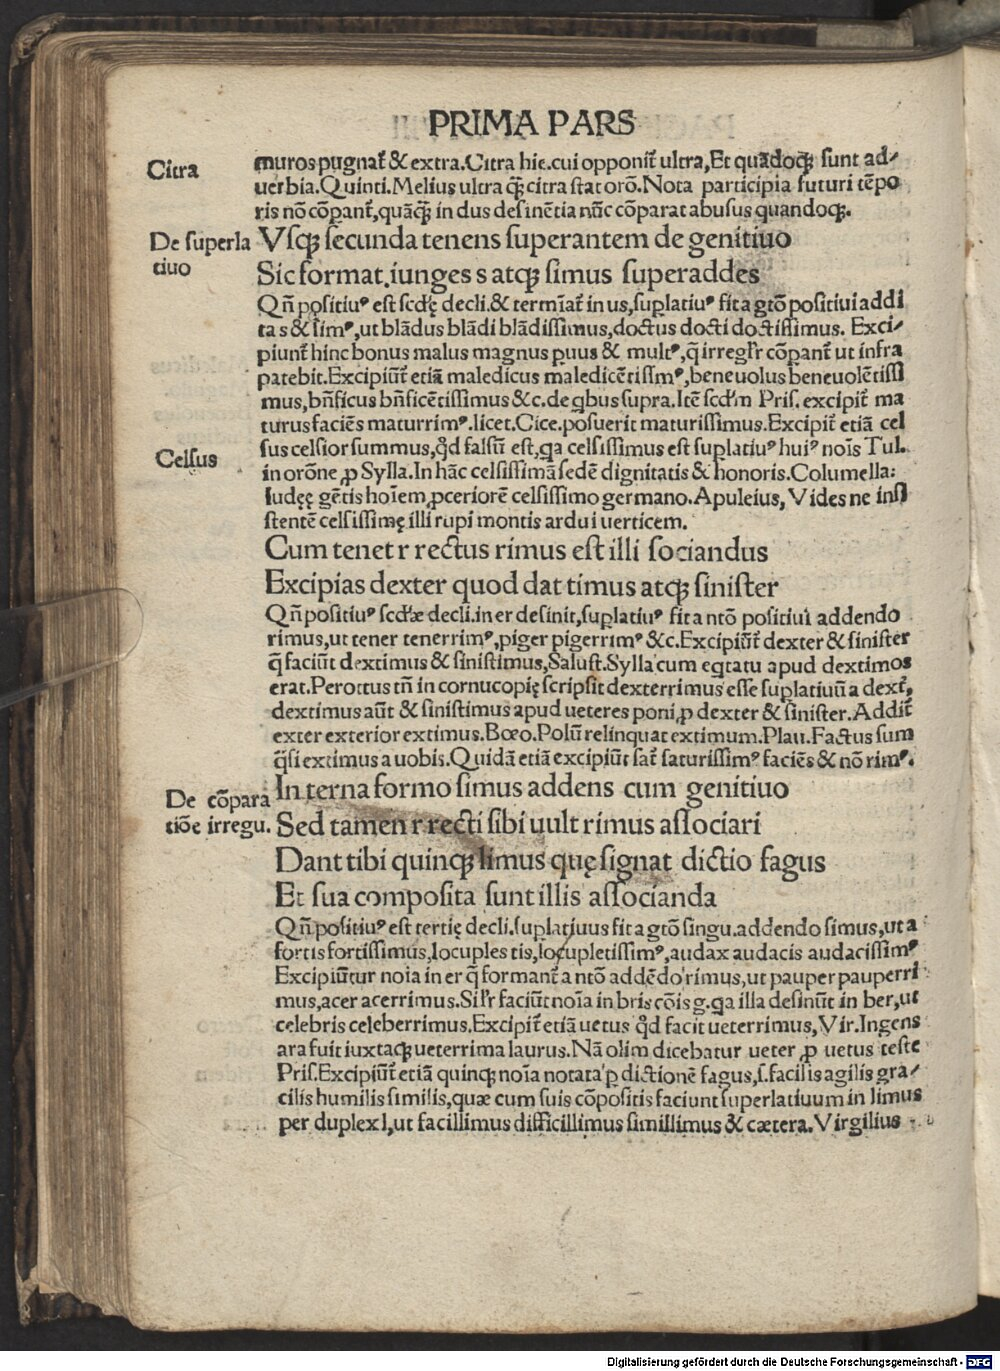 PRIMA PARS
Citra
muros pugnat᷑ & extra. Citra hic. cui opponit᷑ ultra, Et quādoqꝫ sunt ad⸗
uerbia. Quinti. Melius ultra q̄ꝫ citra stat orō. Nota participia futuri tēpo
ris nō cōpant᷑, quāq̄ꝫ in dus desinētia nūc cōparat abusus quandoqꝫ.
De superla
tiuo
Vsqꝫ secunda tenens superantem de genitiuo
Sic format, iunges s atqꝫ simus superaddes
Qn̄ positiuꝰ est scdȩ̄ decli. & termīat᷑ in us, suplatiuꝰ fit a gtō positiui addi
ta s & simꝰ, ut blādus blādi blādissimus, doctus docti doctissimus. Exci⸗
piunt᷑ hinc bonus malus magnus puus & multꝰ, q̄ irregl’r cōpant᷑ ut infra
patebit. Excipiūt᷑ etiā maledicus maledicētissimꝰ, beneuolus beneuolētissi
mus, bn̄ficus bn̄ficētissimus &c. de qbus supra. Itē scd’m Pris. excipit᷑ ma
turus faciēs maturrimꝰ. licet. Cice. posuerit maturissimus. Excipit᷑ etiā cel
Celsus
sus celsior summus, qd̄ falsū est, qa celsissimus est suplatiuꝰ huiꝰ noīs Tul.
in orōne ꝓ Sylla. In hāc celsissimā sedē dignitatis & honoris. Columella:
Iudȩȩ gētis hoīem, ꝓceriorē celsissimo germano. Apuleius, Vides ne insi
stentē celsissimȩ illi rupi montis ardui uerticem.
Cum tenet r rectus rimus est illi sociandus
Excipias dexter quod dat timus atqꝫ sinister
Qn̄ positiuꝰ scd’æ decli. in er desinit, suplatiuꝰ fit a ntō positiui addendo
rimus, ut tener tenerrimꝰ, piger pigerrimꝰ &c. Excipiūt᷑ dexter & sinister
q̄ faciūt dextimus & sinistimus, Salust. Sylla cum eqtatu apud dextimos
erat. Perottus tn̄ in cornucopiȩ scripsit dexterrimus esse suplatiuū a dext᷑,
dextimus aūt & sinistimus apud ueteres poni, ꝓ dexter & sinister. Addit᷑
exter exterior extimus. Boeo. Polū relinquat extimum. Plau. Factus sum
q̄si extimus a uobis. Quidā etiā excipiūt sat᷑ saturissimꝰ faciēs & nō rimꝰ.
De cōpara
tiōe irregu.
In terna formo simus addens cum genitiuo
Sed tamen r recti sibi uult rimus associari
Dant tibi quinqꝫ limus quȩ signat dictio fagus
Et sua composita sunt illis associanda
Qn̄ positiuꝰ est tertiȩ decli. suplatiuus fit a gtō singu. addendo simus, ut a
fortis fortissimus, locuples tis, locupletissimꝰ, audax audacis audacissimꝰ
Excipiūtur noīa in er q̄ formant᷑ a ntō addēdo rimus, ut pauper pauperri
mus, acer acerrimus. Sil’r faciūt noīa in bris cōis g. qa illa desinūt in ber, ut
celebris celeberrimus. Excipit᷑ etiā uetus qd̄ facit ueterrimus, Vir. Ingens
ara fuit iuxtaqꝫ ueterrima laurus. Nā olim dicebatur ueter ꝓ uetus teste
Pris. Excipiūt᷑ etiā quinqꝫ noīa notata ꝑ dictionē fagus, s. facilis agilis gra⸗
cilis humilis similis, quæ cum suis cōpositis faciunt superlatiuum in limus
per duplex l, ut facillimus difficillimus simillimus & cætera. Virgilius
Digitalisierung gefördert durch die Deutsche Forschungsgemeinschaft - DFG